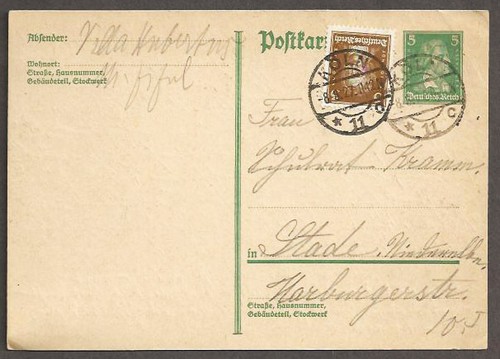 Absender: Villa Hubertus
Wohnort:
Straße, Hausnummer,
Gebäudeteil, Stockwerk
Postkar
Deutsches Reich
5 5
Deutsches Reich
KÖLN
* 11 c
* 11 c
Frau
Schulrat Kramm.
in Stade,
Harburgerstr.
Straße, Hausnummer,
Gebäudeteil, Stockwerk